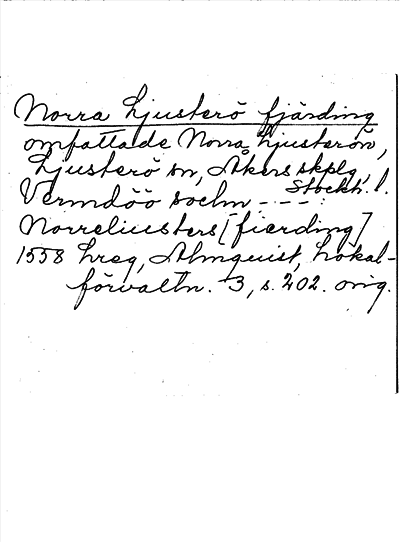 Norra Ljusterö fjärding
omfattade Norra Ljusterön,
Ljusterö sn, Åkers skplg,
Stockh. l.
Vermdöö sochn - - - :
Norreliusters [fierding]
1558 hreg, Almquist, Lokal-
förvaltn. 3, s. 202. orig.